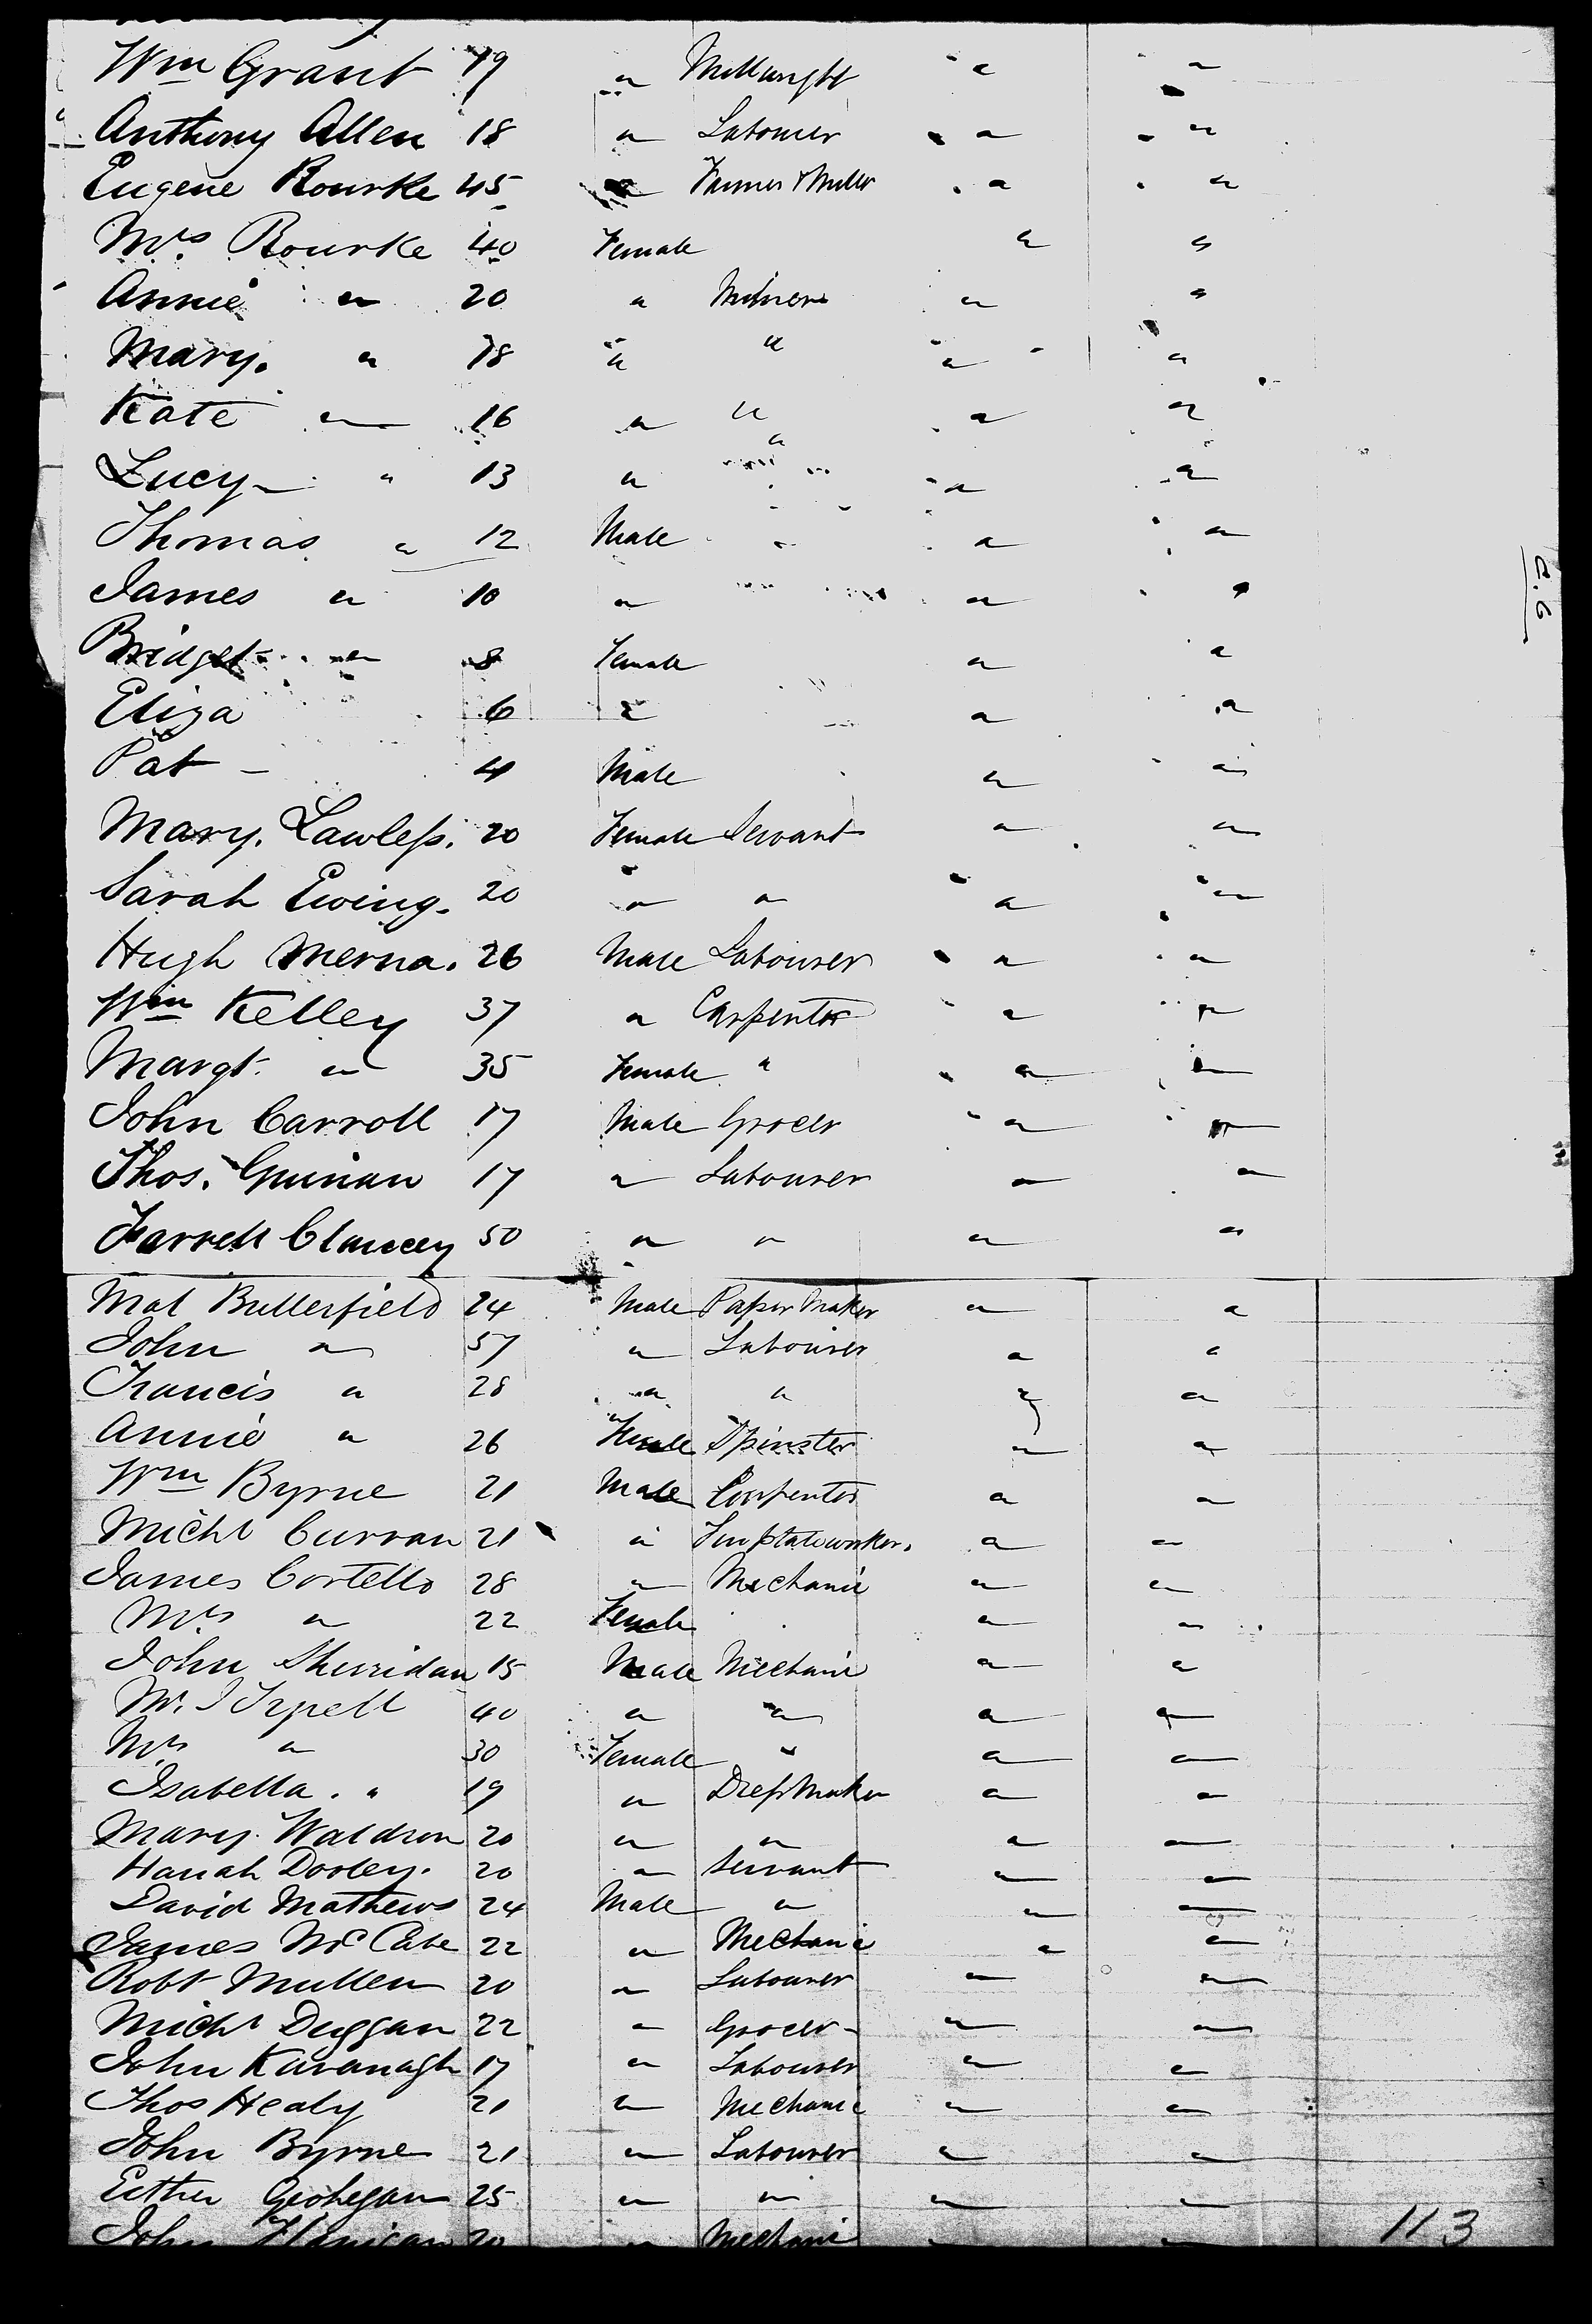 Wm Grant 19 " Millwright " "
Anthony Allen 18 " Labourer " "
Eugene Rourke 45 " Farmer & Miller " "
Mrs. Rourke 40 Female " "
Annie " 20 " " "
Mary. " 18 " " " "
Kate " 16 " " " "
Lucy " 13 " " " "
Thomas " 12 Male " "
James " 10 " " "
Bridget " 8 Female " "
Eliza 6 " " "
Pat - 4 Male " "
Mary. Lawless. 20 Female Servant " "
Sarah Ewing. 20 " " " "
Hugh Merna. 26 Male Labourer " "
Wm Kelley 37 " Carpenter " "
Margt. " 35 Female " " "
John Carroll 17 Male Grocer " "
Thos. Guinan 17 " Labourer " "
Farrell Clancey 50 " " " "
Mat Butterfield 24 Male Paper Maker " "
John " 57 " Labourer " "
Francis " 28 " " " "
Annie " 26 Female Spinster " "
Wm Byrne 21 Male Carpenter " "
Michl Curran 21 " Tinplateworker. " "
James Costello 28 " Mechanic " "
Mrs " 22 Female " "
John Sherridan 15 Male Mechanic " "
Mr. J Tyrell 40 " " " "
Mrs " 30 Female " " "
Isabella. " 19 " Dress Maker " "
Mary Waldron 20 " " " "
Hanah Dooley. 20 " Servant " "
David Mathews 24 Male " " "
James McCabe 22 " Mechanic " "
Robt Mullen 20 " Labourer " "
Michl Duggan 22 " Grocer - " "
John Kavanagh 17 " Labourer " "
Thos Healy 21 " Mechanic " "
John Byrne 21 " Labourer " "
Esther Geohegan 25 " " " "
John Flanigan 20 " Mechanic " "
113